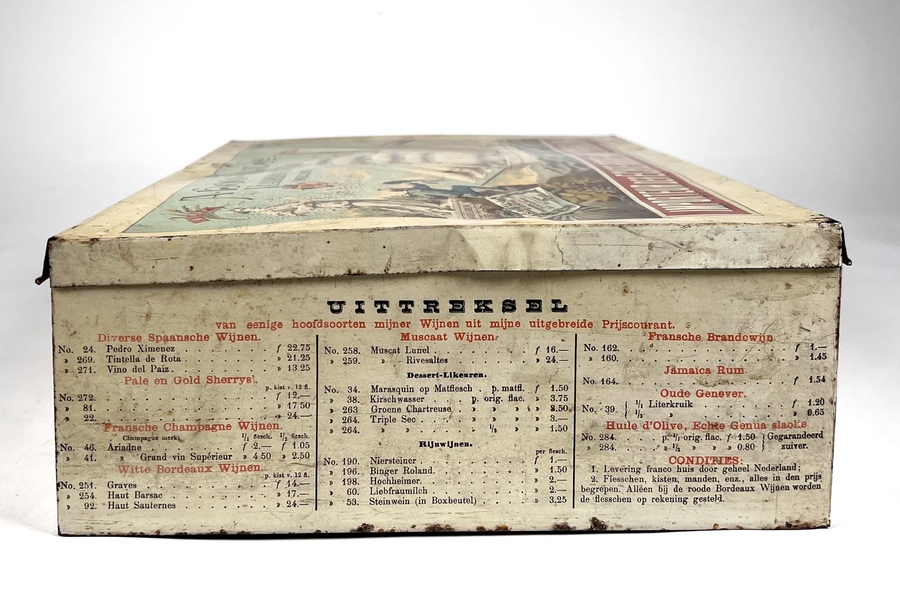 UITTREKSEL
van eenige hoofdsoorten mijner Wijnen uit mijne uitgebreide Prijscourant.
Diverse Spaansche Wijnen.
No. 24. Pedro Ximenez . . . . . ƒ 22.75
» 269. Tintella de Rota . . . . . » 21.25
» 271. Vino del Paiz . . . . . » 13.25
Pale en Gold Sherrys.
p. kist v. 12 fl.
No. 272. . . . . . ƒ 12.—
» 81. . . . . . » 17 50
» 22. . . . . . » 24.—
Fransche Champagne Wijnen.
Champagne merk. 1/1 flesch. 1/2 flesch.
No. 46. Ariadne . . . . . ƒ 2.— ƒ 1.05
» 41. » Grand vin Supérieur » 4.50 » 2.50
Witte Bordeaux Wijnen.
p. kist v. 12 fl.
No. 251. Graves . . . . . ƒ 14.—
» 254. Haut Barsac . . . . . » 17.—
» 92. Haut Sauternes . . . . . » 24.—
Muscaat Wijnen.
No. 258. Muscat Lunel . . . . . ƒ 16.—
» 259. » Rivesaltes . . . . . » 24.—
Dessert-Likeuren.
No. 34. Marasquin op Matflesch . p. matfl. ƒ 1.50
» 38. Kirschwasser . p. orig. flac. » 3.75
» 263 Groene Chartreuse . » » » » 8.50
» 264. Triple Sec . . . » » » » 3.—
» 264. » » . . . 1/2 » » 1.50
Rijnwijnen.
per flesch.
No. 190. Niersteiner . . . . . ƒ 1.—
» 196. Binger Roland. . . . . . » 1.50
» 198. Hochheimer. . . . . . » 2.—
» 60. Liebfraumilch . . . . . » 2.—
» 53. Steinwein (in Boxbeutel) . . . » 3,25
Fransche Brandewijn
No. 162. . . . . . ƒ 1.—
» 160. . . . . . » 1.45
Jamaica Rum.
No. 164. . . . . . ƒ 1.54
Oude Genever.
No. 39. { 1/1 Literkruik . . . . . ƒ 1.20
1/2 » . . . . . » 0,65
Huile d'Olive, Echte Genua slaolie
No. 284. p. 1/1 orig. flac. ƒ 1.50 } Gegarandeerd
» 284. » 1/2 » » » 0.80 } zuiver.
CONDITIES.
1. Levering franco huis door geheel Nederland;
2. Flesschen, kisten, manden, enz., alles in den prijs
begrepen. Alléén bij de roode Bordeaux Wijnen worden
de flesschen op rekening gesteld.